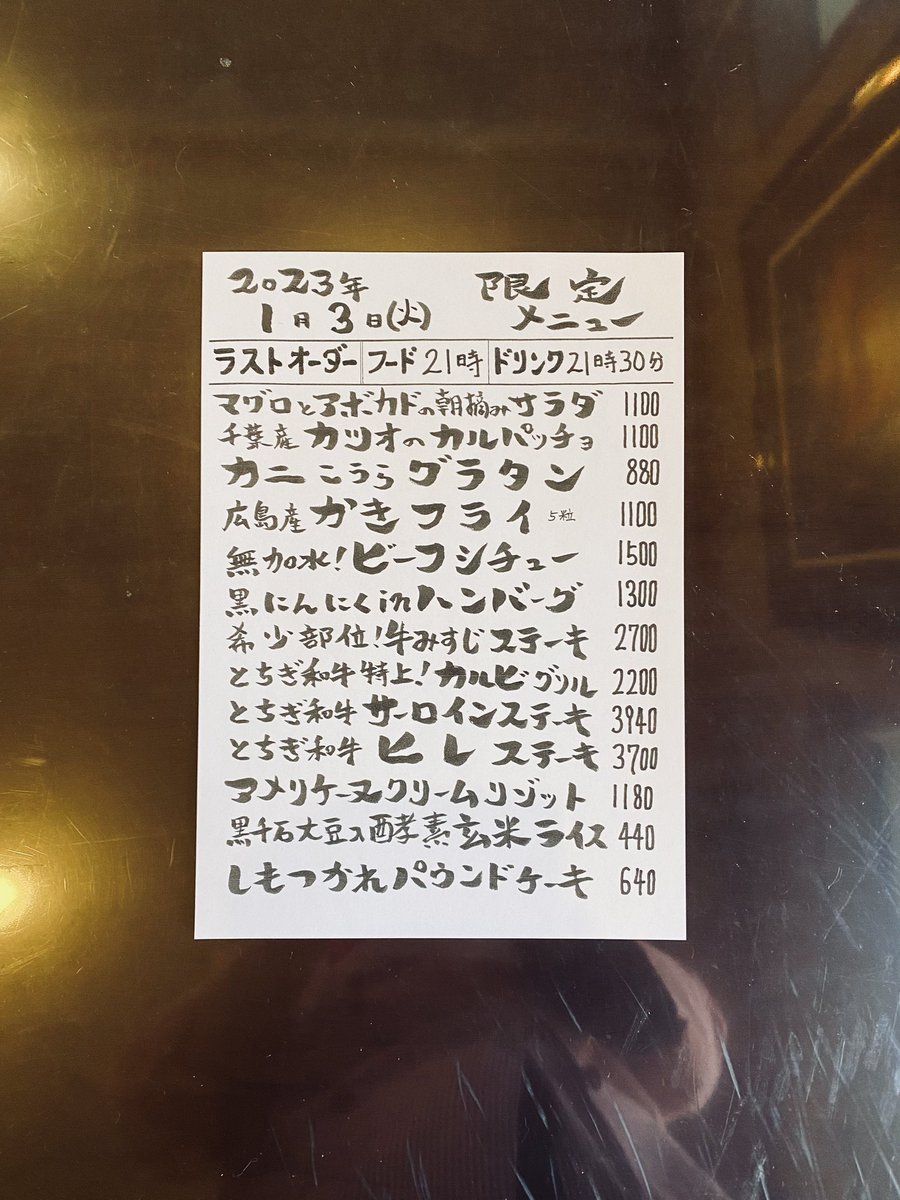 2023年 限定
1月3日(火) メニュー
ラストオーダー フード21時 ドリンク21時30分
マグロとアボカドの朝摘みサラダ 1100
千葉産カツオのカルパッチョ 1100
カニこうらグラタン 880
広島産かきフライ 5粒 1100
無加水!ビーフシチュー 1500
黒にんにくinハンバーグ 1300
希少部位!牛みすじステーキ 2700
とちぎ和牛特上!カルビグリル 2200
とちぎ和牛サーロインステーキ 3940
とちぎ和牛ヒレステーキ 3700
アメリケーヌクリームリゾット 1180
黒千石大豆入酵素玄米ライス 440
しもつかれパウンドケーキ 640